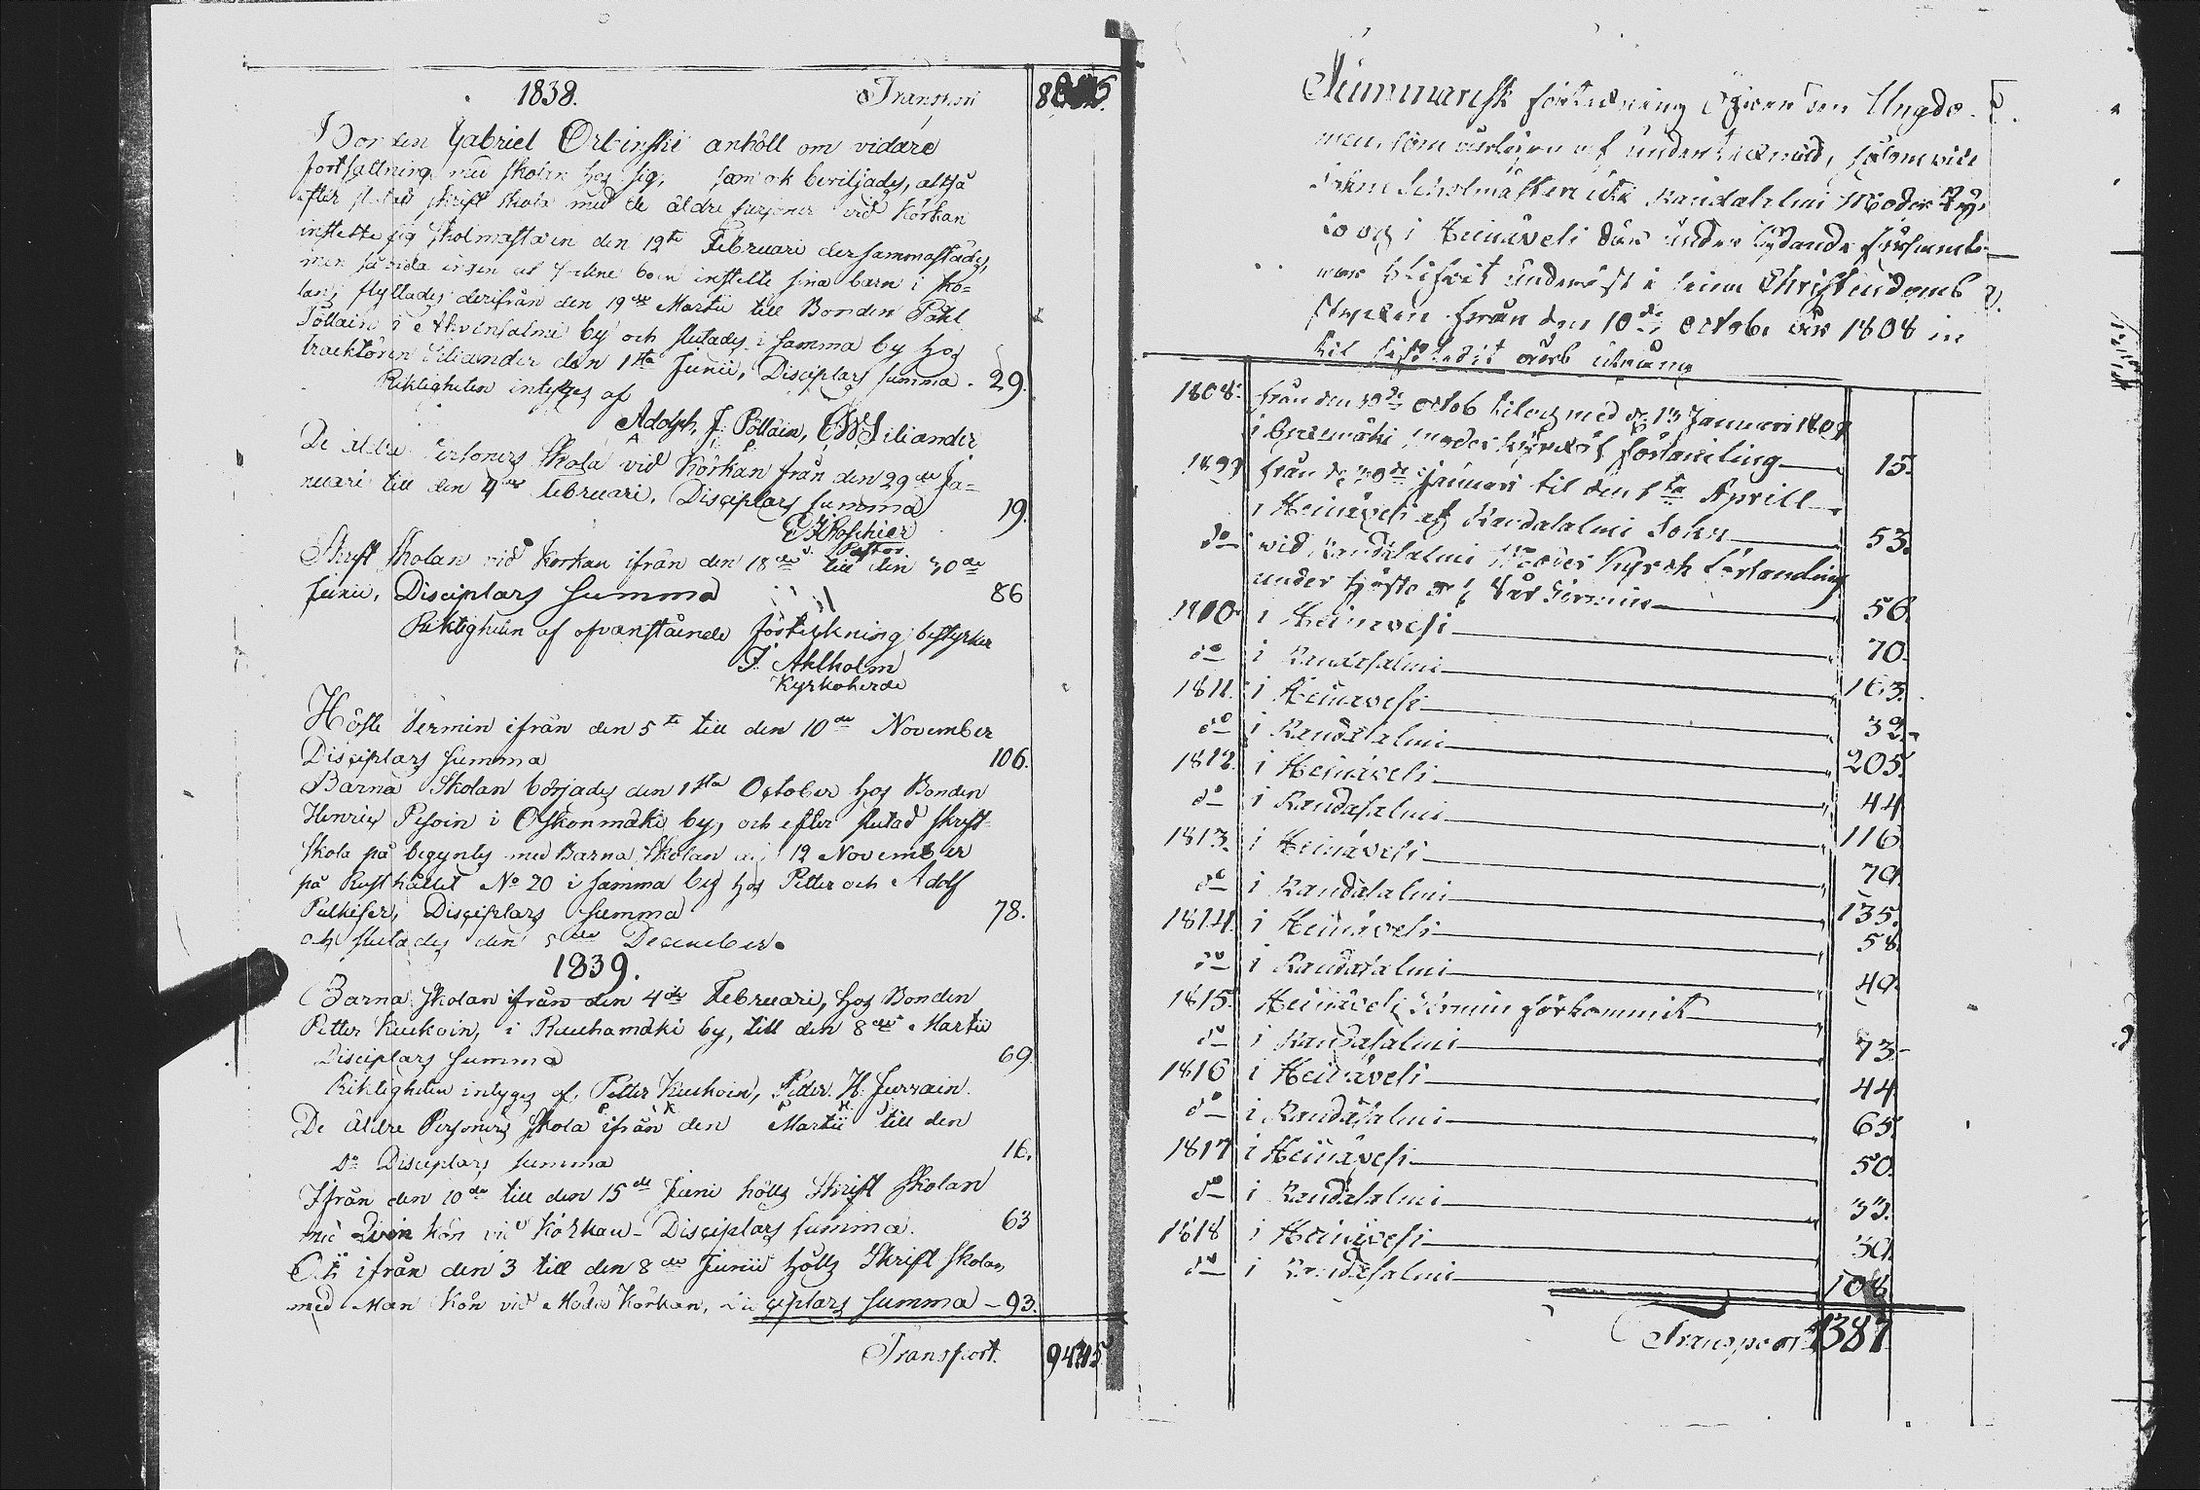 1838. Transport
Bonden Gabriel Orbinski anhöll om vidare
fortsättning med skolan hos sig, som ock beviljades, altså
efter slutad skrift skola med de äldre personer vid Körkan
instelte sig skolmästaren den 12te Februari dersammastädes,
men så vida ingen af boen instelte sina barn i sko=
lan, flyttades derifrån den 19de Martii till Bonden Påhl
Pöllain i Ahvensalmi by och slutades i samma by hos
traktören Siliander den 1sta Junii, Disciplars summa. 29.
Riktigheten intyges af
Adolph. J. Pöllain, Siliander
De äldre Personers Skola vid Körkan från den 29de Ja=
nuari till den 4de Februari. Disciplars summa 19.
Poschier
Pastor.
Skrift skolan vid Körkan ifrån den 18de till den 30de
Junii, Disciplars Summa 86
Riktigheten af ofvanstående förteckning bestyrker
F. Ahlholm
Kyrkoherde
Höste Termin ifrån den 5te till den 10de November
Disciplars summa 106.
Barna Skolan börjades den 1sta October hos Bonden
Henric Pesoin i Oskonmäki by, och efter slutad skrift=
skola på begyntes med Barna Skolan 12 November
på Rusthållet No 20 i samma by hos Petter och Adolf
Pulkiser, Disciplars Summa 78.
och slutades den 5de December.
1839.
Barna Skolan ifrån den 4de Februari, hos Bonden
Petter Kuckoin, i Ruuhamäki by, till den 8de Martii
Disciplars summa 69.
Riktigheten intyges af, Petter Kuckoin, Petter H. Jurrain.
De äldre Personers Skola ifrån den Martii till den
Do Disciplars summa 16.
Ifrån den 10de till den 15de Junii hölts Skrift Skolan
med Qvin kön vid Körkan - Disciplars summa. 63
Och ifrån den 3 till den 8de Junii hölts Skrift skolan
med Man Kön vid Moder Körkan, Disciplars summa - 93.
Transport.
Summarisk förteckning öfver den Ungdo-
men, som af undertecknad, såsom
Scholmästare uti Randasalmi Moder Kyr-
ko och i Heinävesi der under lydande församl-
blifvit undervist i sina Christendoms
stycken från den 10de Octob. år 1808 in
til sistledit års utgång
1808. från den 10de Octob til och med d. 13 Januari 1809
moder 15.
1809 från d. 30de Januari til den 1sta Aprill
i Heinävesi af Randasalmi Sokn 53.
do vid Randasalmi Moder Kyrck
under höste Vår Termin 56.
1810. i Heinävesi 70.
do i Randasalmi 163.
1811. i Heinävesi 32.
do i Randasalmi 205.
1812. i Heinävesi 44
do i Randasalmi 116.
1813. i Heinävesi 79.
do i Randasalmi 135.
1814. i Heinävesi 58.
do i Randasalmi 49.
1815. Heinävesi Termin förkommit
do i Randasalmi 73.
1816 i Heinävesi 44.
do i Randasalmi 65.
1817 i Heinävesi 50.
do i Randasalmi 33.
1818 i Heinävesi 30.
do i Randasalmi 108
Transport 1387.